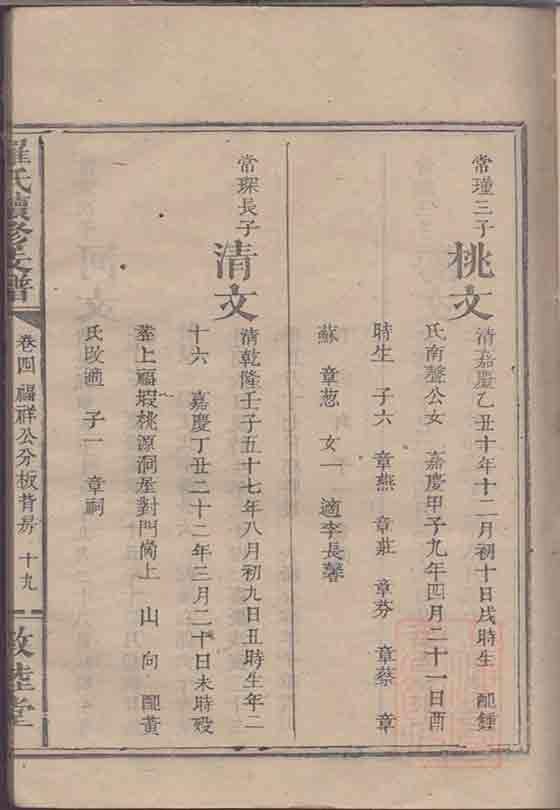 常瑾三子
桃文
清嘉慶乙丑十年十二月初十日戌時生 配鍾
氏南聲公女 嘉慶甲子九年四月二十一日酉
時生 子六 章燕 章莊 章芬 章蔡 章
蘇 章葱 女一 適李長馨
常琛長子
清文
清乾隆壬子五十七年八月初九日丑時生年二
十六 嘉慶丁丑二十二年三月二十日未時歿
塟上福嘏桃源洞坔對門崗上 山 向 配黃
氏改適 子一 章祠
羅氏續修支譜
卷四 福祥公分板背房 十九
敦睦堂